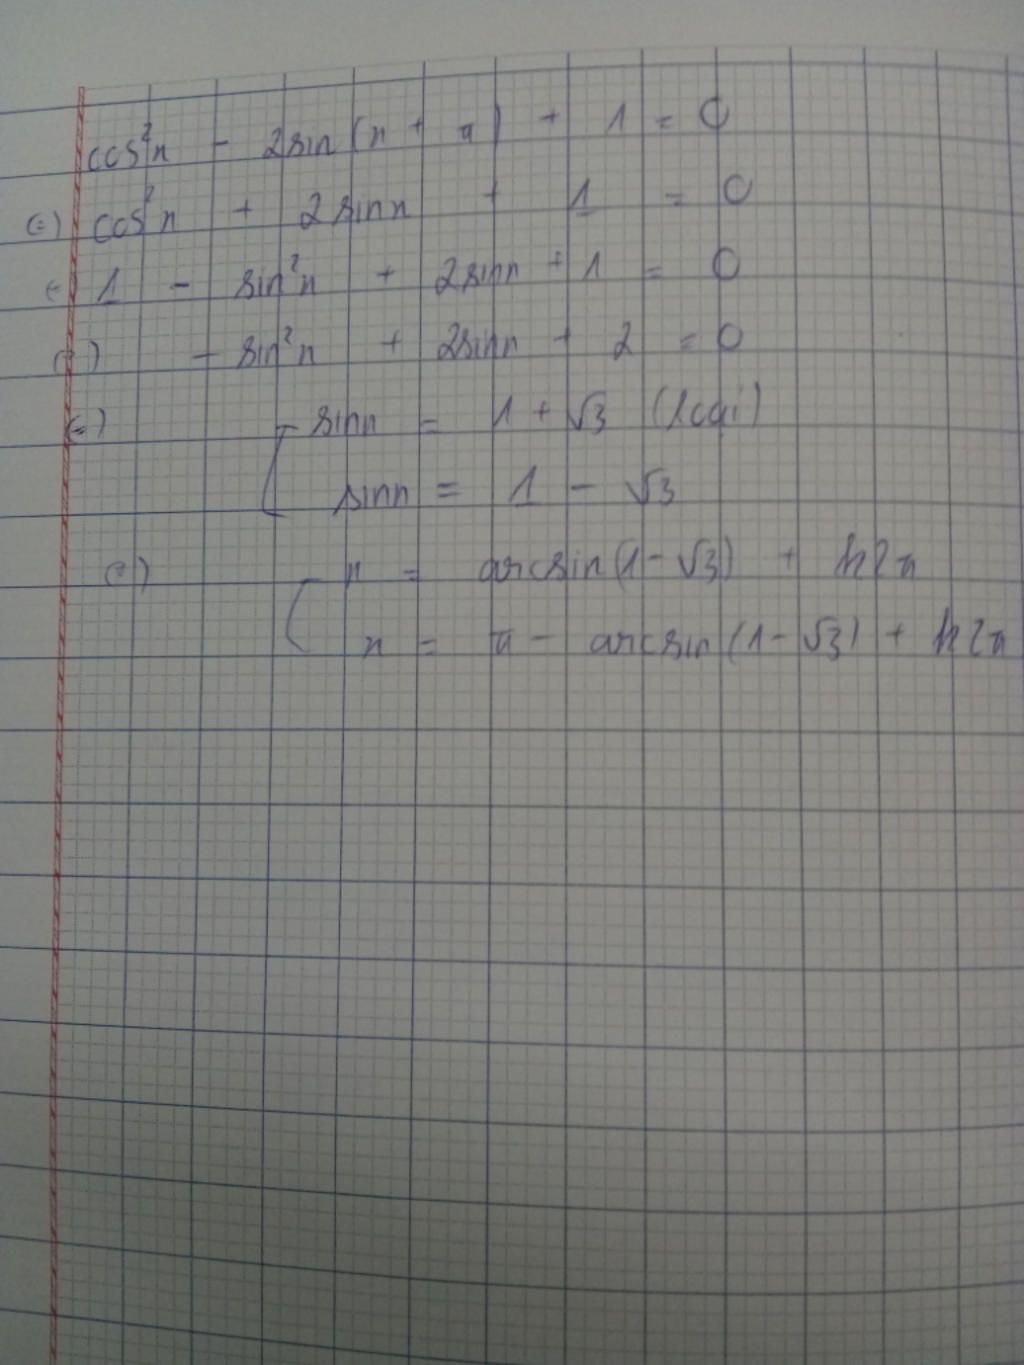 cos²x - 2sin(x + π) + 1 = 0
(=) cos²x + 2sinx + 1 = 0
(=) 1 - sin²x + 2sinx + 1 = 0
(=) - sin²x + 2sinx + 2 = 0
(=) [ sinx = 1 + √3 (loại)
sinx = 1 - √3
(=) [ x = arcsin(1 - √3) + k2π
x = π - arcsin(1 - √3) + k2π